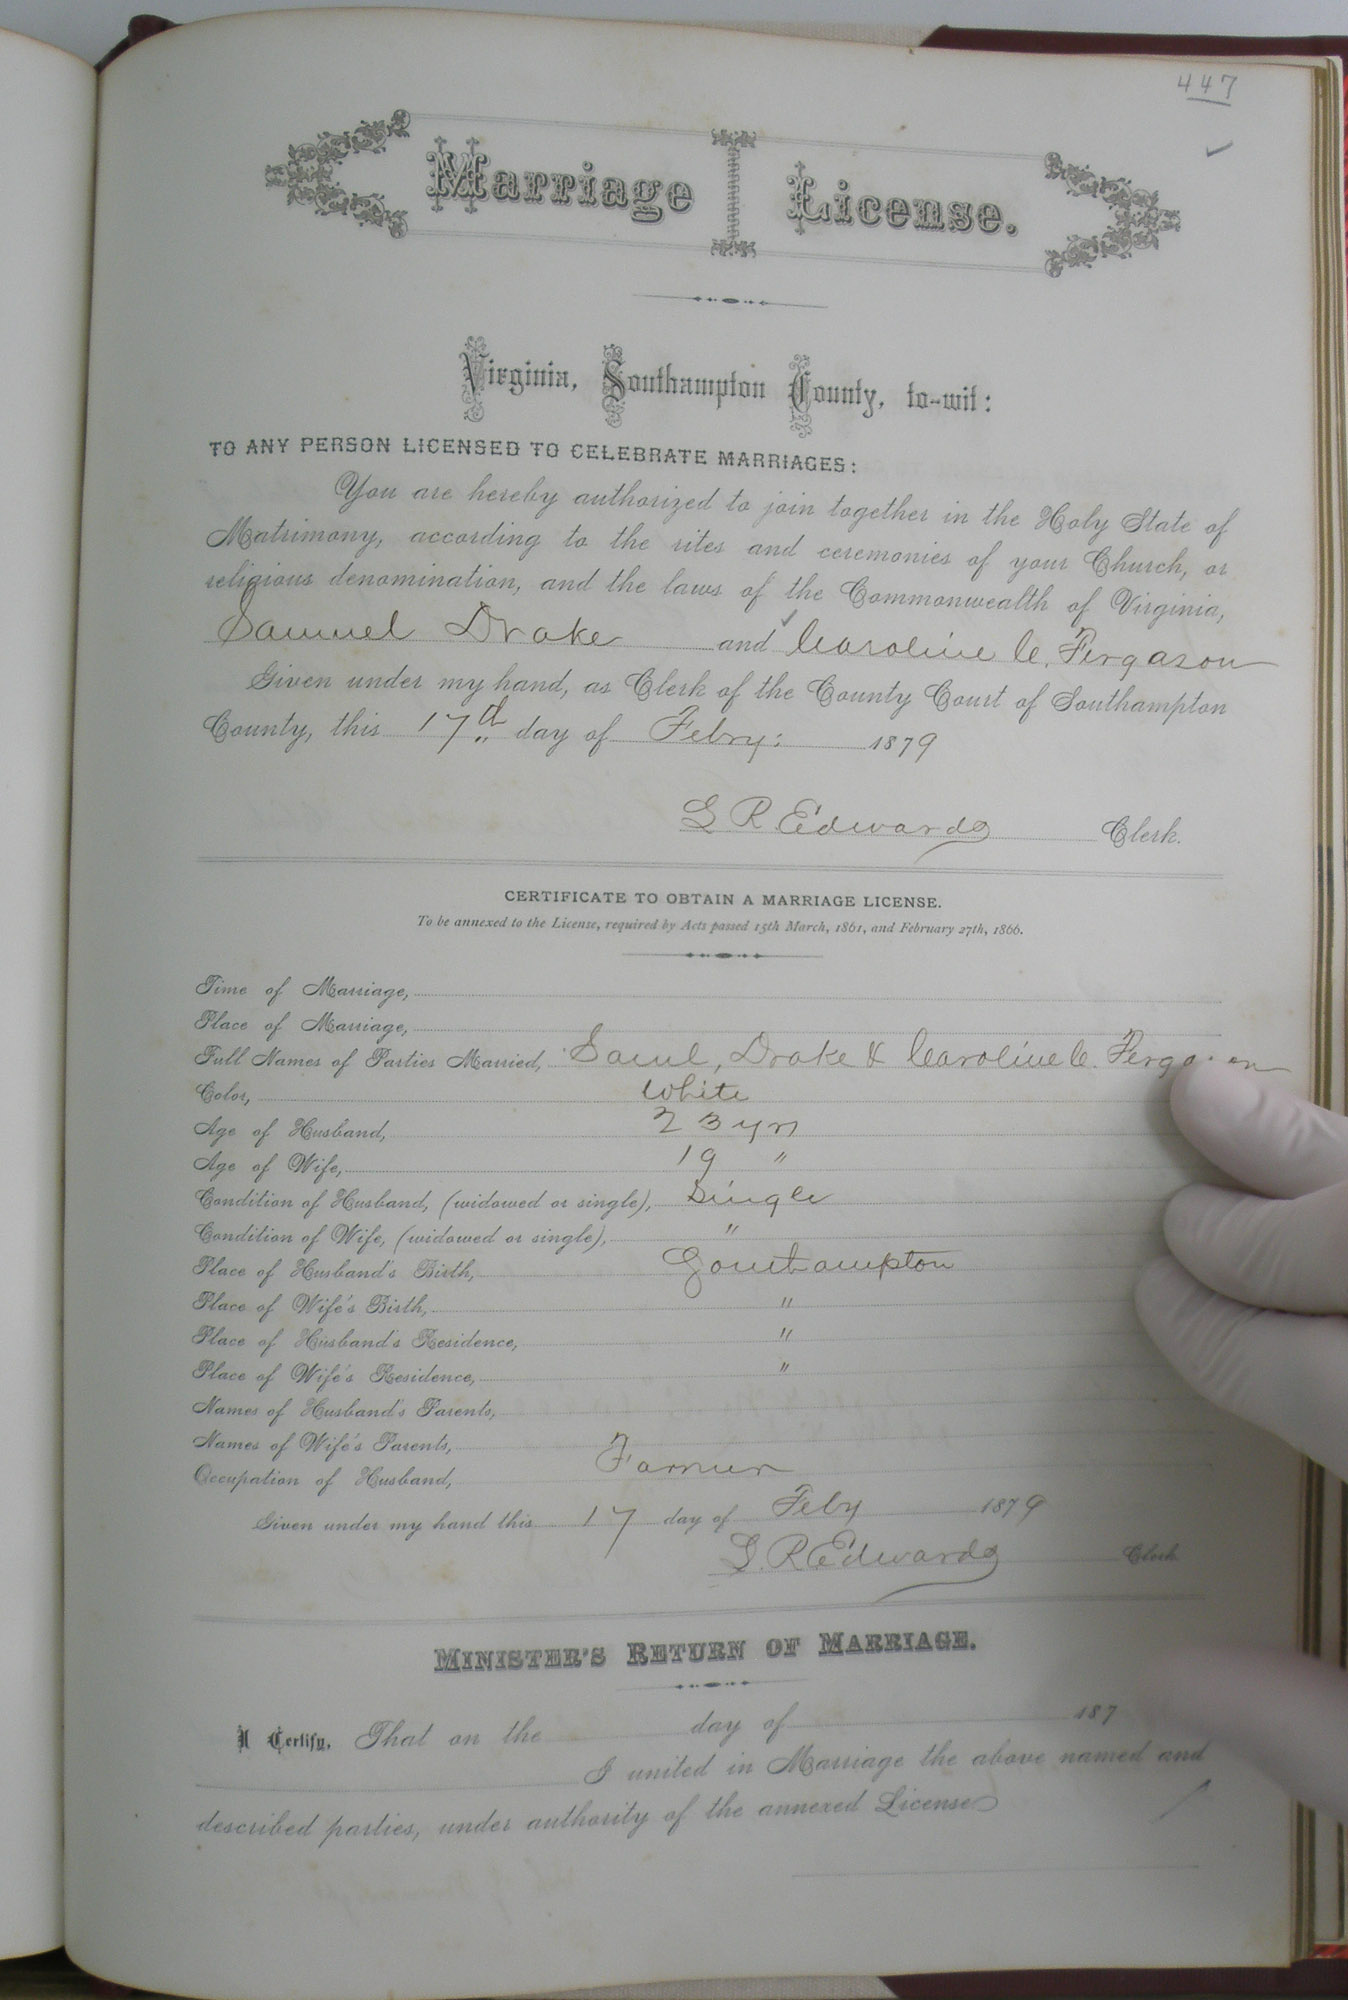 447
Marriage License.
Virginia, Southampton County, to-wit:
TO ANY PERSON LICENSED TO CELEBRATE MARRIAGES:
You are hereby authorized to join together in the Holy State of
Matrimony, according to the rites and ceremonies of your Church, or
religious denomination, and the laws of the Commonwealth of Virginia,
Samuel Drake and Caroline C. Fergason
Given under my hand, as Clerk of the County Court of Southampton
County, this 17th day of Febry: 1879
L R Edwards Clerk.
CERTIFICATE TO OBTAIN A MARRIAGE LICENSE.
To be annexed to the License, required by Acts passed 15th March, 1861, and February 27th, 1866.
Time of Marriage,
Place of Marriage,
Full Names of Parties Married, Saml, Drake & Caroline C. Fergason
Color, White
Age of Husband, 23 yrs
Age of Wife, 19 "
Condition of Husband, (widowed or single), Single
Condition of Wife, (widowed or single), "
Place of Husband's Birth, Southampton
Place of Wife's Birth, "
Place of Husband's Residence, "
Place of Wife's Residence, "
Names of Husband's Parents,
Names of Wife's Parents,
Occupation of Husband, Farmer
Given under my hand this 17 day of Feby 1879
L. R Edwards Clerk
MINISTER'S RETURN OF MARRIAGE.
I Certify, That on the day of 187
I united in Marriage the above named and
described parties, under authority of the annexed License